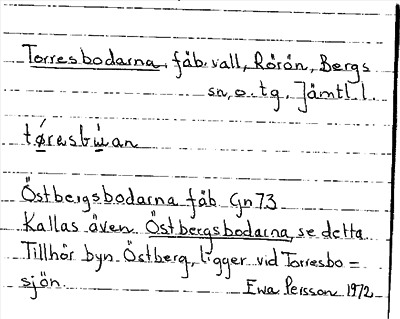 Torresbodarna, fäb.vall, Rörön, Bergs
sn, o. tg. Jämtl. l.
tø̱rasbu̱̇an
Östbergsbodarna fäb Gn 73
Kallas även Östbergsbodarna, se detta.
Tillhör byn Östberg, ligger vid Torresbo=
sjön.
Ewa Persson 1972